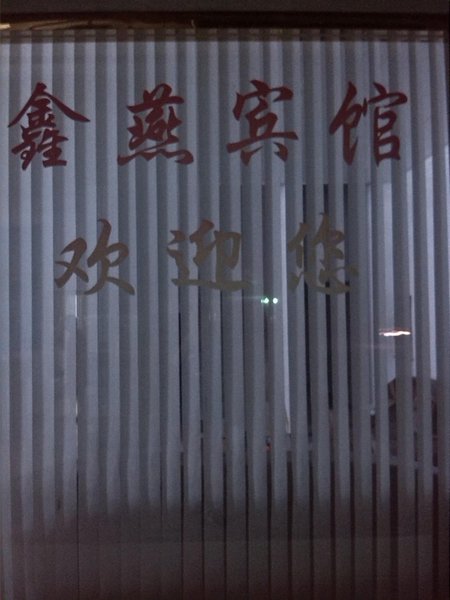 鑫燕宾馆
欢迎您